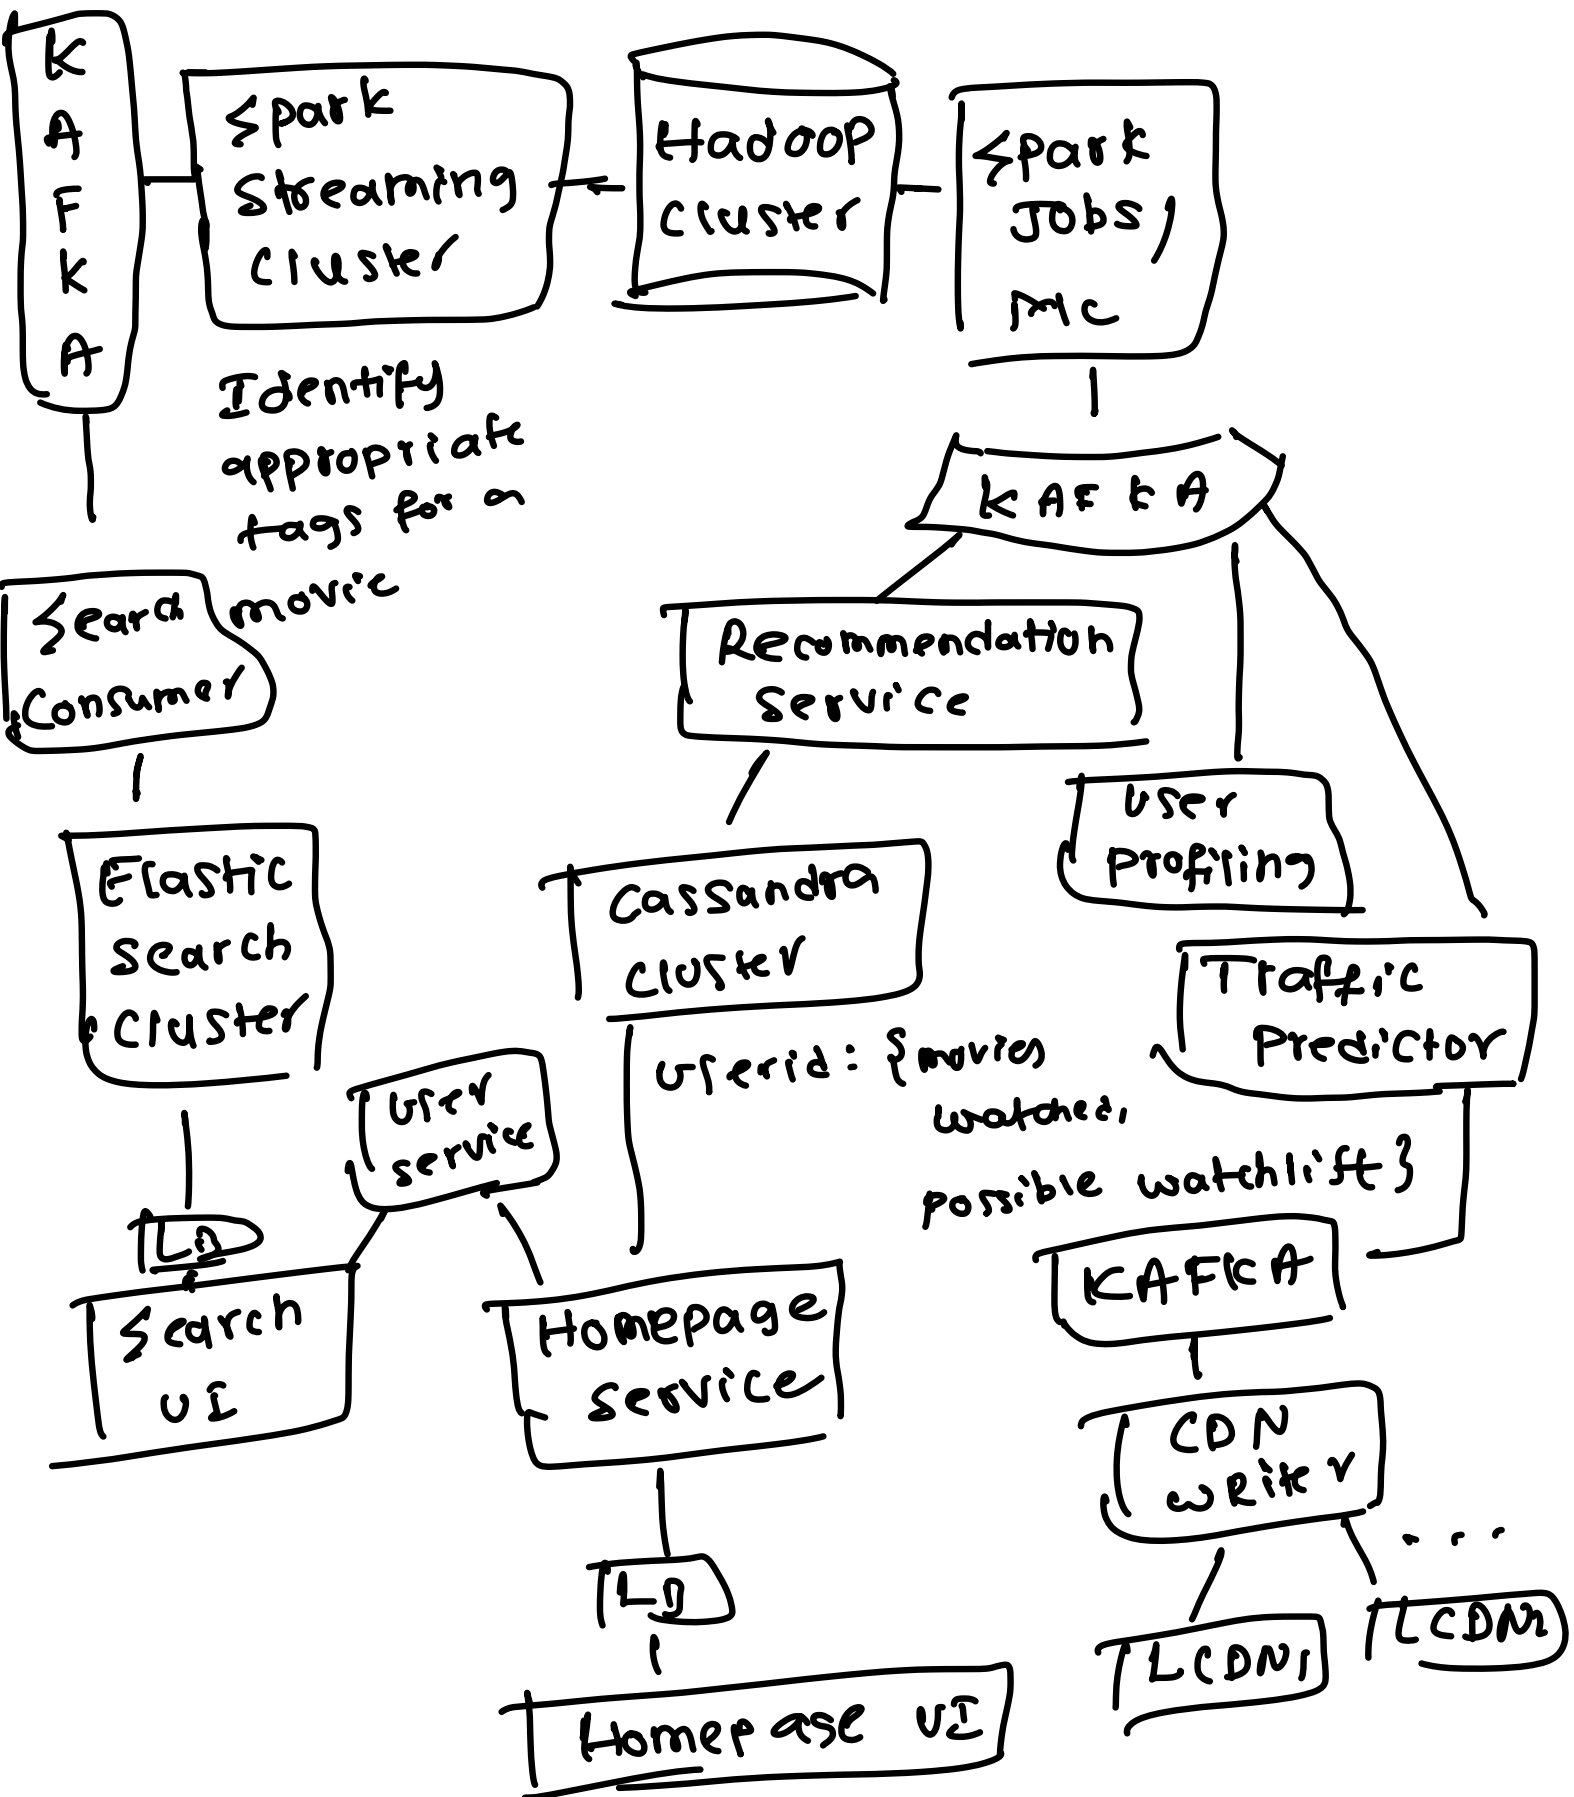 KAFKA
Spark
Streaming
Cluster
Hadoop
Cluster
Spark
Jobs,
MC
Identify
appropriate
tags for a
movie
KAFKA
Search
Consumer
Recommendation
Service
User
Profiling
Elastic
Search
Cluster
Cassandra
Cluster
Traffic
Predictor
userid: {movies
watched,
possible watchlist}
User
service
LB
Search
UI
Homepage
Service
KAFKA
CDN
writer
...
LB
LCDN1
LCDN2
Homepage UI